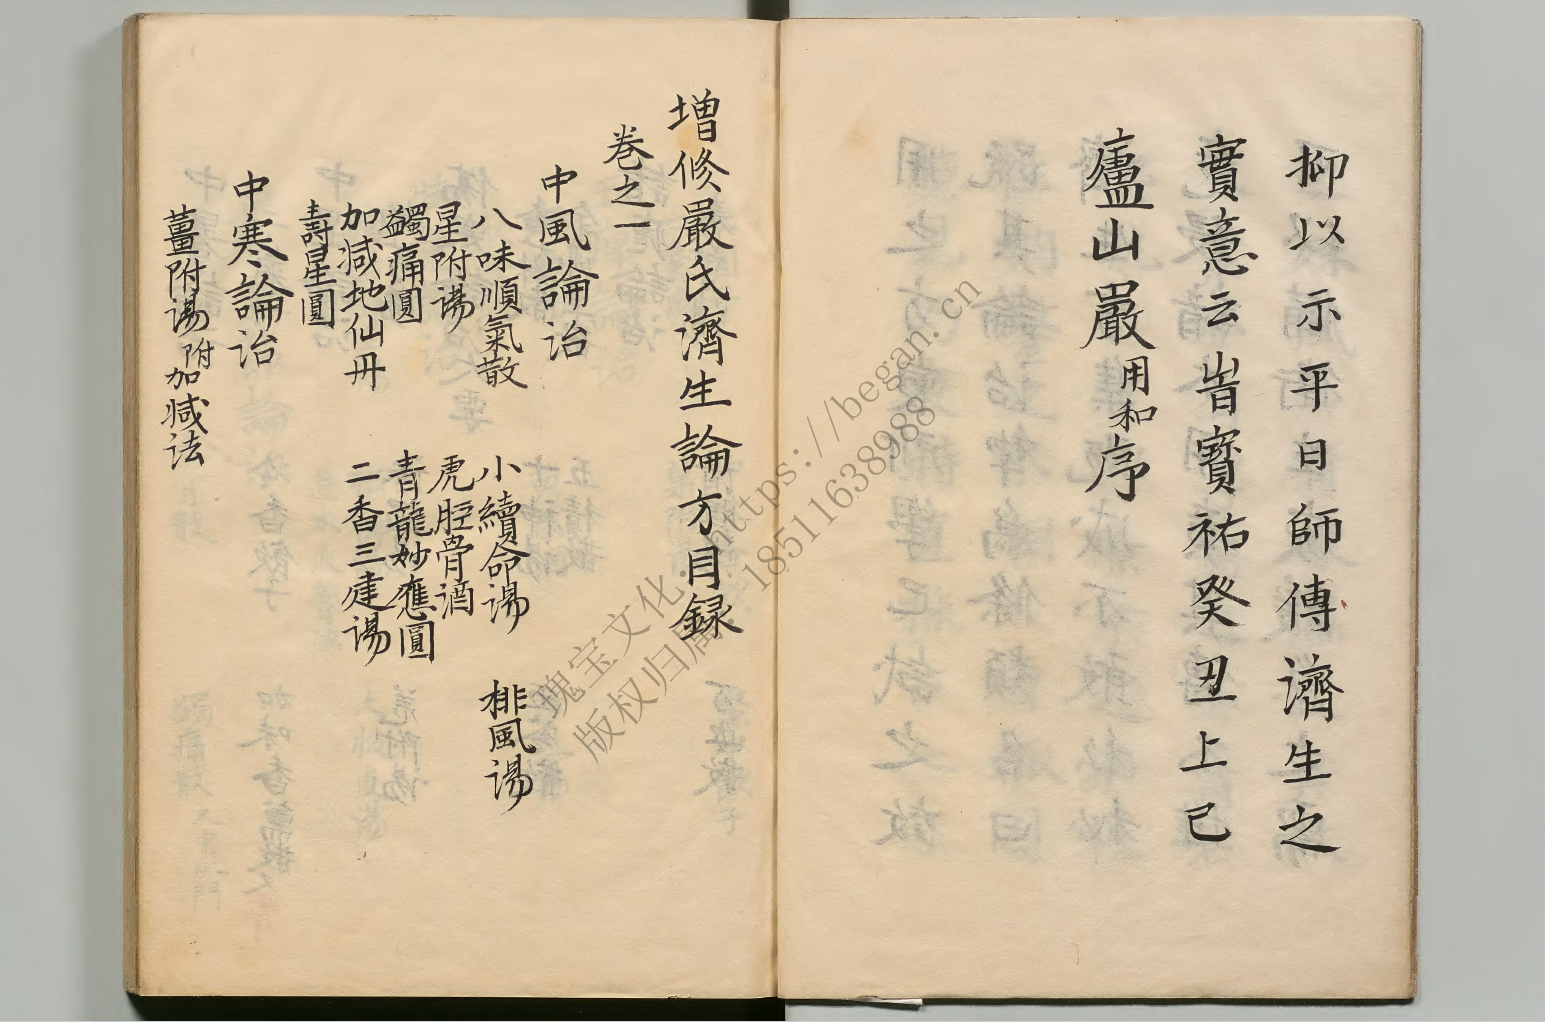 抑以示平日師傳濟生之
實意云峕寳祐癸丑上巳
廬山嚴用和序
增修嚴氏濟生論方目録
卷之一
中風論治
八味順氣散 小續命湯 排風湯
星附湯 虎脛骨酒
蠲痛圓 青龍妙應圓
加減地仙丹 二香三建湯
壽星圓
中寒論治
薑附湯附加减法
瑰宝文化:https://began.cn
版权归属:18511638988